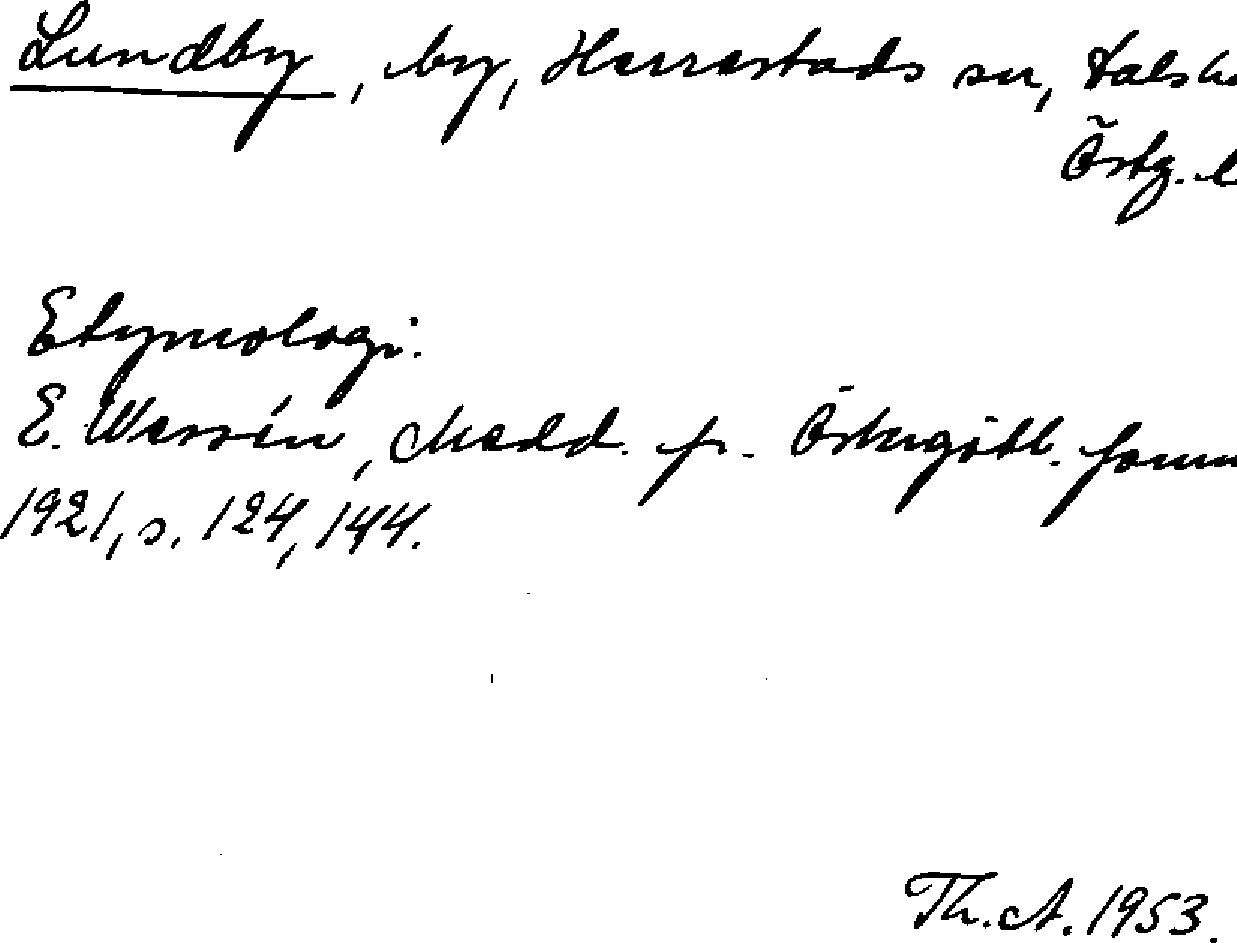 Lundby, by, Herrestads sn, Dals h
Östg. l
Etymologi.
E. Wessén, Medd. fr. Östergötl. forn
1921, s. 124, 144.
Th. A. 1953.